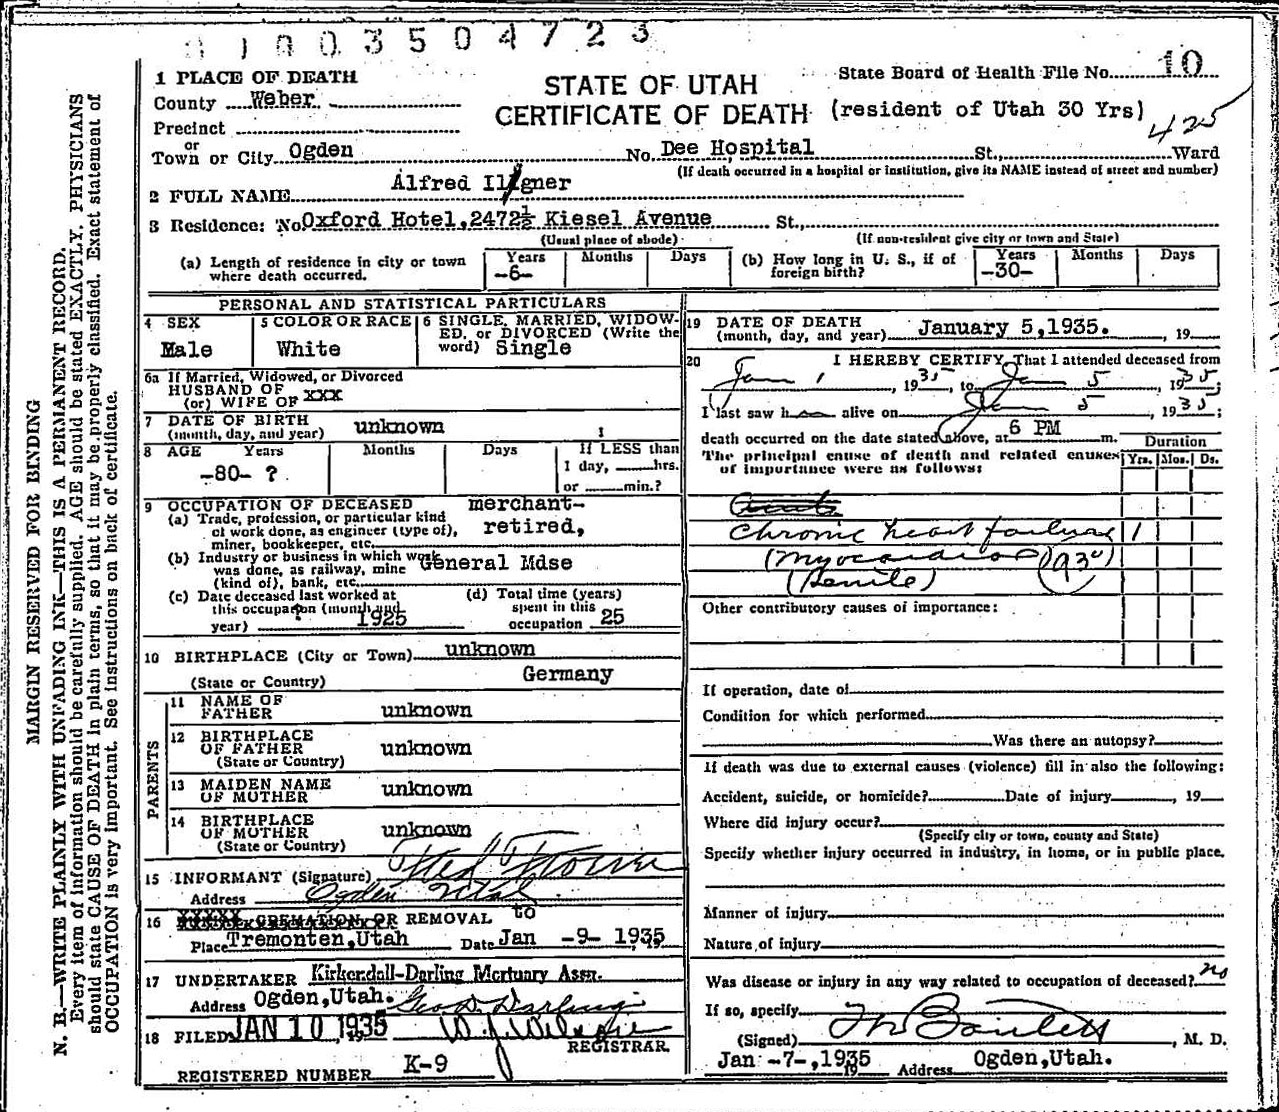 0 1 0 0 3 5 0 4 7 2 3
1 PLACE OF DEATH
County Weber
Precinct
or
Town or City Ogden
STATE OF UTAH
CERTIFICATE OF DEATH (resident of Utah 30 Yrs)
State Board of Health File No. 10
425
No. Dee Hospital St., Ward
(If death occurred in a hospital or institution, give its NAME instead of street and number)
2 FULL NAME Alfred Illgner
3 Residence: No Oxford Hotel, 2472½ Kiesel Avenue St.,
(Usual place of abode) (If non-resident give city or town and State)
(a) Length of residence in city or town where death occurred. Years -6- Months Days
(b) How long in U. S., if of foreign birth? Years -30- Months Days
PERSONAL AND STATISTICAL PARTICULARS
4 SEX
Male
5 COLOR OR RACE
White
6 SINGLE, MARRIED, WIDOW-
ED, or DIVORCED (Write the
word) Single
6a If Married, Widowed, or Divorced
HUSBAND OF
(or) WIFE OF xxx
7 DATE OF BIRTH
(month, day, and year) unknown
8 AGE Years Months Days If LESS than
1 day, hrs.
or min.?
-80- ?
9 OCCUPATION OF DECEASED merchant-
(a) Trade, profession, or particular kind
of work done, as engineer (type of),
miner, bookkeeper, etc. retired,
(b) Industry or business in which work
was done, as railway, mine
(kind of), bank, etc. General Mdse
(c) Date deceased last worked at
this occupation (month and
year) ? 1925
(d) Total time (years)
spent in this
occupation 25
10 BIRTHPLACE (City or Town) unknown
(State or Country) Germany
PARENTS
11 NAME OF
FATHER unknown
12 BIRTHPLACE
OF FATHER unknown
(State or Country)
13 MAIDEN NAME
OF MOTHER unknown
14 BIRTHPLACE
OF MOTHER unknown
(State or Country)
15 INFORMANT (Signature)
Address Ogden Utah
16 CREMATION OR REMOVAL to
Place Tremonten, Utah Date Jan -9- 1935
17 UNDERTAKER Kirkendall-Darling Mortuary Assn.
Address Ogden, Utah. Geo D. Darling
18 FILED JAN 10 1935, 19
REGISTRAR
REGISTERED NUMBER K-9
19 DATE OF DEATH
(month, day, and year) January 5, 1935. , 19
20 I HEREBY CERTIFY, That I attended deceased from
Jan 1, 1935, to Jan 5, 1935,
I last saw h alive on Jan 5, 1935;
death occurred on the date stated above, at 6 PM m.
The principal cause of death and related causes
of importance were as follows:
Duration
Yrs. Mos. Ds.
Chronic heart failure 1
(Myocarditis)
(Senile)
930
Other contributory causes of importance:
If operation, date of
Condition for which performed
Was there an autopsy?
If death was due to external causes (violence) fill in also the following:
Accident, suicide, or homicide? Date of injury , 19
Where did injury occur?
(Specify city or town, county and State)
Specify whether injury occurred in industry, in home, or in public place.
Manner of injury
Nature of injury
Was disease or injury in any way related to occupation of deceased? no
If so, specify
(Signed) , M. D.
Jan -7-, 1935 19 Address Ogden, Utah.
MARGIN RESERVED FOR BINDING
N. B.—WRITE PLAINLY WITH UNFADING INK—THIS IS A PERMANENT RECORD.
Every item of information should be carefully supplied. AGE should be stated EXACTLY. PHYSICIANS
should state CAUSE OF DEATH in plain terms, so that it may be properly classified. Exact statement of
OCCUPATION is very important. See instructions on back of certificate.